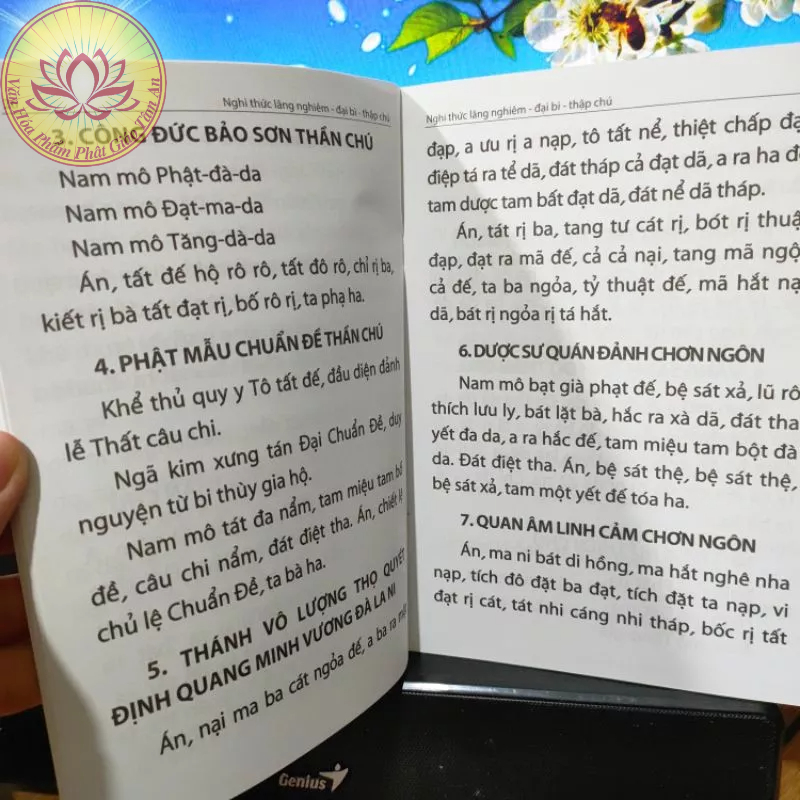 Văn Hóa Phẩm Phật Giáo Tâm An
Nghi thức lăng nghiêm - đại bi - thập chú
3. CÔNG ĐỨC BẢO SƠN THẦN CHÚ
Nam mô Phật-đà-da
Nam mô Đạt-ma-da
Nam mô Tăng-dà-da
Án, tất đế hộ rô rô, tất đô rô, chỉ rị ba,
kiết rị bà tất đạt rị, bố rô rị, ta phạ ha.
4. PHẬT MẪU CHUẨN ĐỀ THẦN CHÚ
Khể thủ quy y Tô tất đế, đầu diện đảnh
lễ Thất câu chi.
Ngã kim xưng tán Đại Chuẩn Đề, duy
nguyện từ bi thùy gia hộ.
Nam mô tát đa nẩm, tam miệu tam bồ
đề, câu chi nẩm, đát điệt tha. Án, chiết lệ
chủ lệ Chuẩn Đề, ta bà ha.
5. THÁNH VÔ LƯỢNG THỌ QUYẾT
ĐỊNH QUANG MINH VƯƠNG ĐÀ LA NI
Án, nại ma ba cát ngỏa đế, a ba ra
Nghi thức lăng nghiêm - đại bi - thập chú
đạp, a ưu rị a nạp, tô tất nể, thiệt chấp
điệp tá ra tể dã, đát tháp cả đạt dã, a ra ha
tam dược tam bất đạt dã, đát nể dã tháp.
Án, tát rị ba, tang tư cát rị, bót rị thuật
đạp, đạt ra mã đế, cả cả nại, tang mã
cả đế, ta ba ngỏa, tỷ thuật đế, mã hắt
dã, bát rị ngỏa rị tá hắt.
6. DƯỢC SƯ QUÁN ĐẢNH CHƠN NGÔN
Nam mô bạt già phạt đế, bệ sát xả, lũ rô
thích lưu ly, bát lặt bà, hắc ra xà dã, đát tha
yết đa da, a ra hắc đế, tam miệu tam bột đà
da. Đát điệt tha. Án, bệ sát thệ, bệ sát thệ,
bệ sát xả, tam một yết đế tóa ha.
7. QUAN ÂM LINH CẢM CHƠN NGÔN
Án, ma ni bát di hồng, ma hắt nghê nha
nạp, tích đô đặt ba đạt, tích đặt ta nạp, vi
đạt rị cát, tát nhi cáng nhi tháp, bốc rị tất
Genius